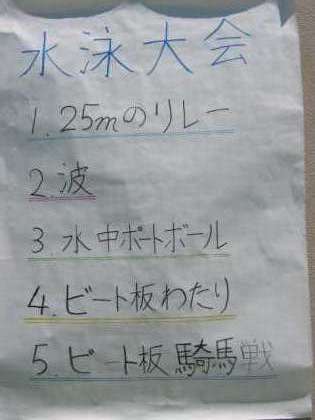 水泳大会
1.25mのリレー
2.波
3.水中ポートボール
4.ビート板わたり
5.ビート板騎馬戦